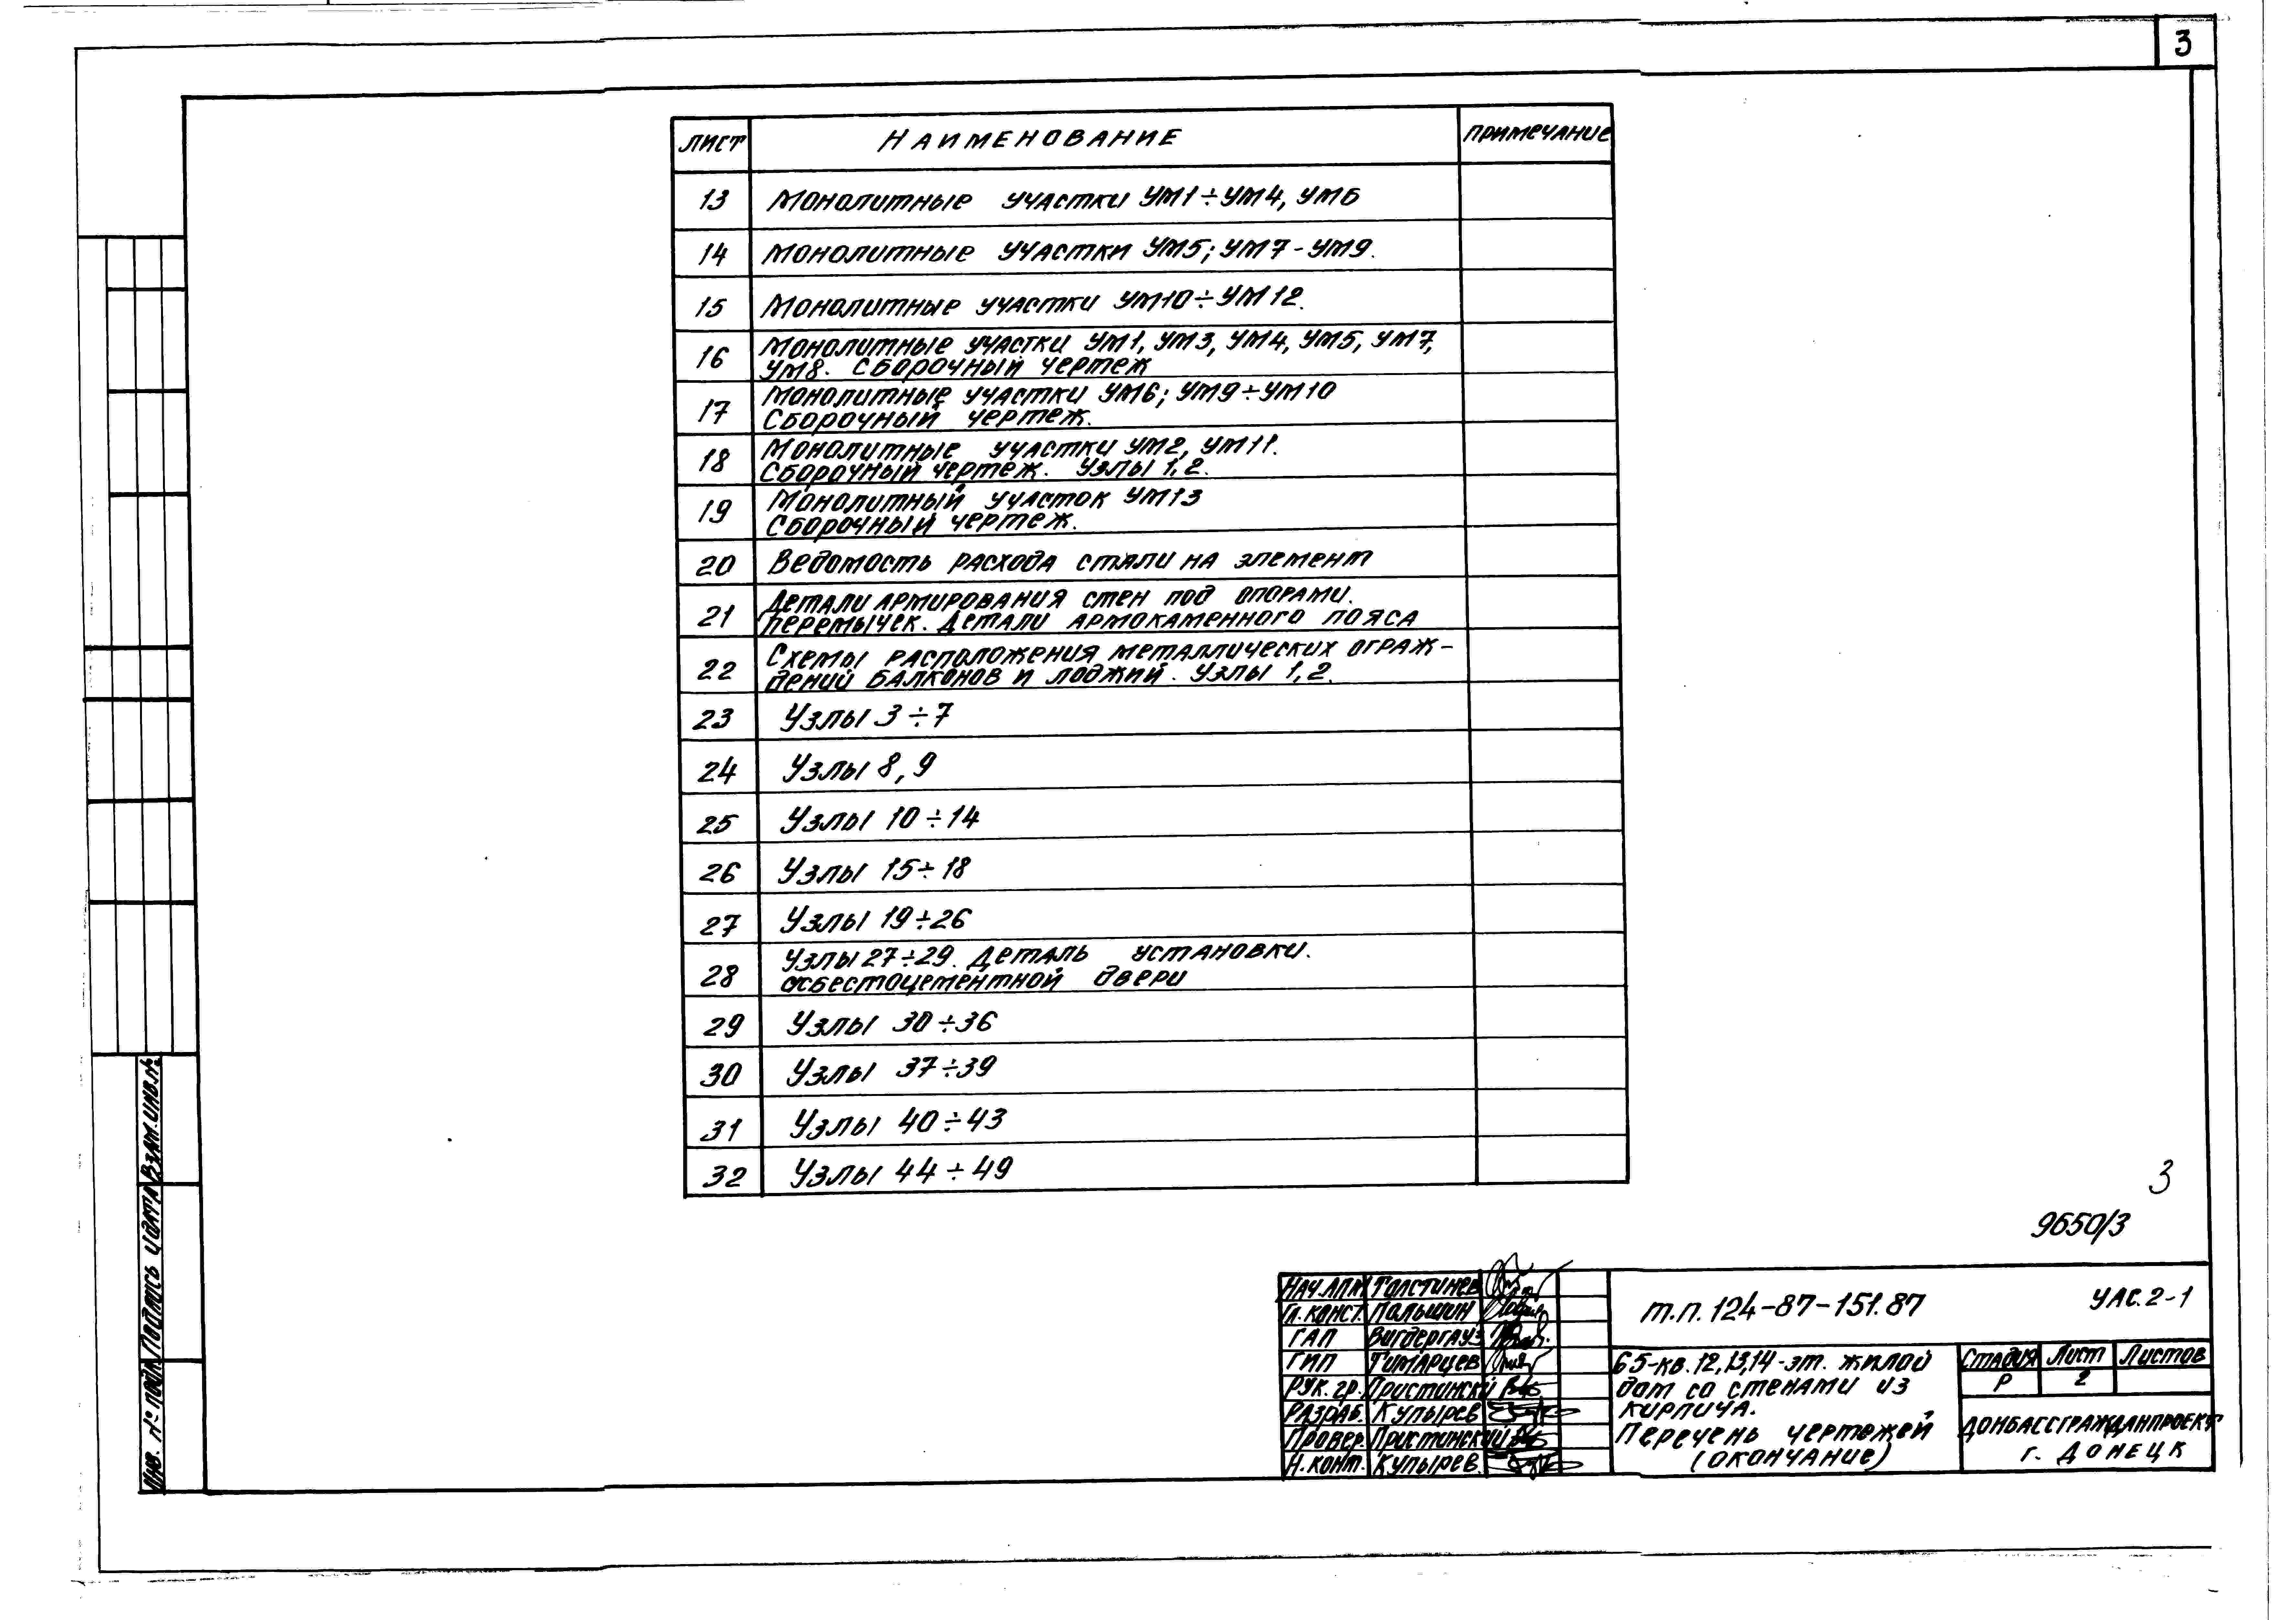 3
ЛИСТ НАИМЕНОВАНИЕ ПРИМЕЧАНИЕ
13 Монолитные участки УМ1÷УМ4, УМ6
14 Монолитные участки УМ5; УМ7-УМ9.
15 Монолитные участки УМ10÷УМ12.
16 Монолитные участки УМ1, УМ3, УМ4, УМ5, УМ7,
УМ8. Сборочный чертеж
17 Монолитные участки УМ6; УМ9÷УМ10
Сборочный чертеж.
18 Монолитные участки УМ2, УМ11.
Сборочный чертеж. Узлы 1,2.
19 Монолитный участок УМ13
Сборочный чертеж.
20 Ведомость расхода стали на элемент
21 Детали армирования стен под опорами.
перемычек. Детали армокаменного пояса
22 Схемы расположения металлических ограж-
дений балконов и лоджий. Узлы 1,2.
23 Узлы 3÷7
24 Узлы 8,9
25 Узлы 10÷14
26 Узлы 15÷18
27 Узлы 19÷26
28 Узлы 27÷29. Деталь установки.
асбестоцементной двери
29 Узлы 30÷36
30 Узлы 37÷39
31 Узлы 40÷43
32 Узлы 44÷49
3
9650/3
Нач. АПМ Толстинев
Гл. конст. Пальшин
ГАП Вигдергауз
ГИП Тимарцев
Рук. гр. Пристински
Разраб. Купырев
Провер. Пристинский
Н. конт. Купырев.
т.п. 124-87-151.87 УАС.2-1
65-кв. 12,13,14-эт. жилой
дом со стенами из
кирпича.
Перечень чертежей
(окончание)
Стадия Лист Листов
Р 2
ДОНБАССГРАЖДАНПРОЕКТ
г. ДОНЕЦК
Взам. инв. №
Подпись и дата
Инв. № подл.